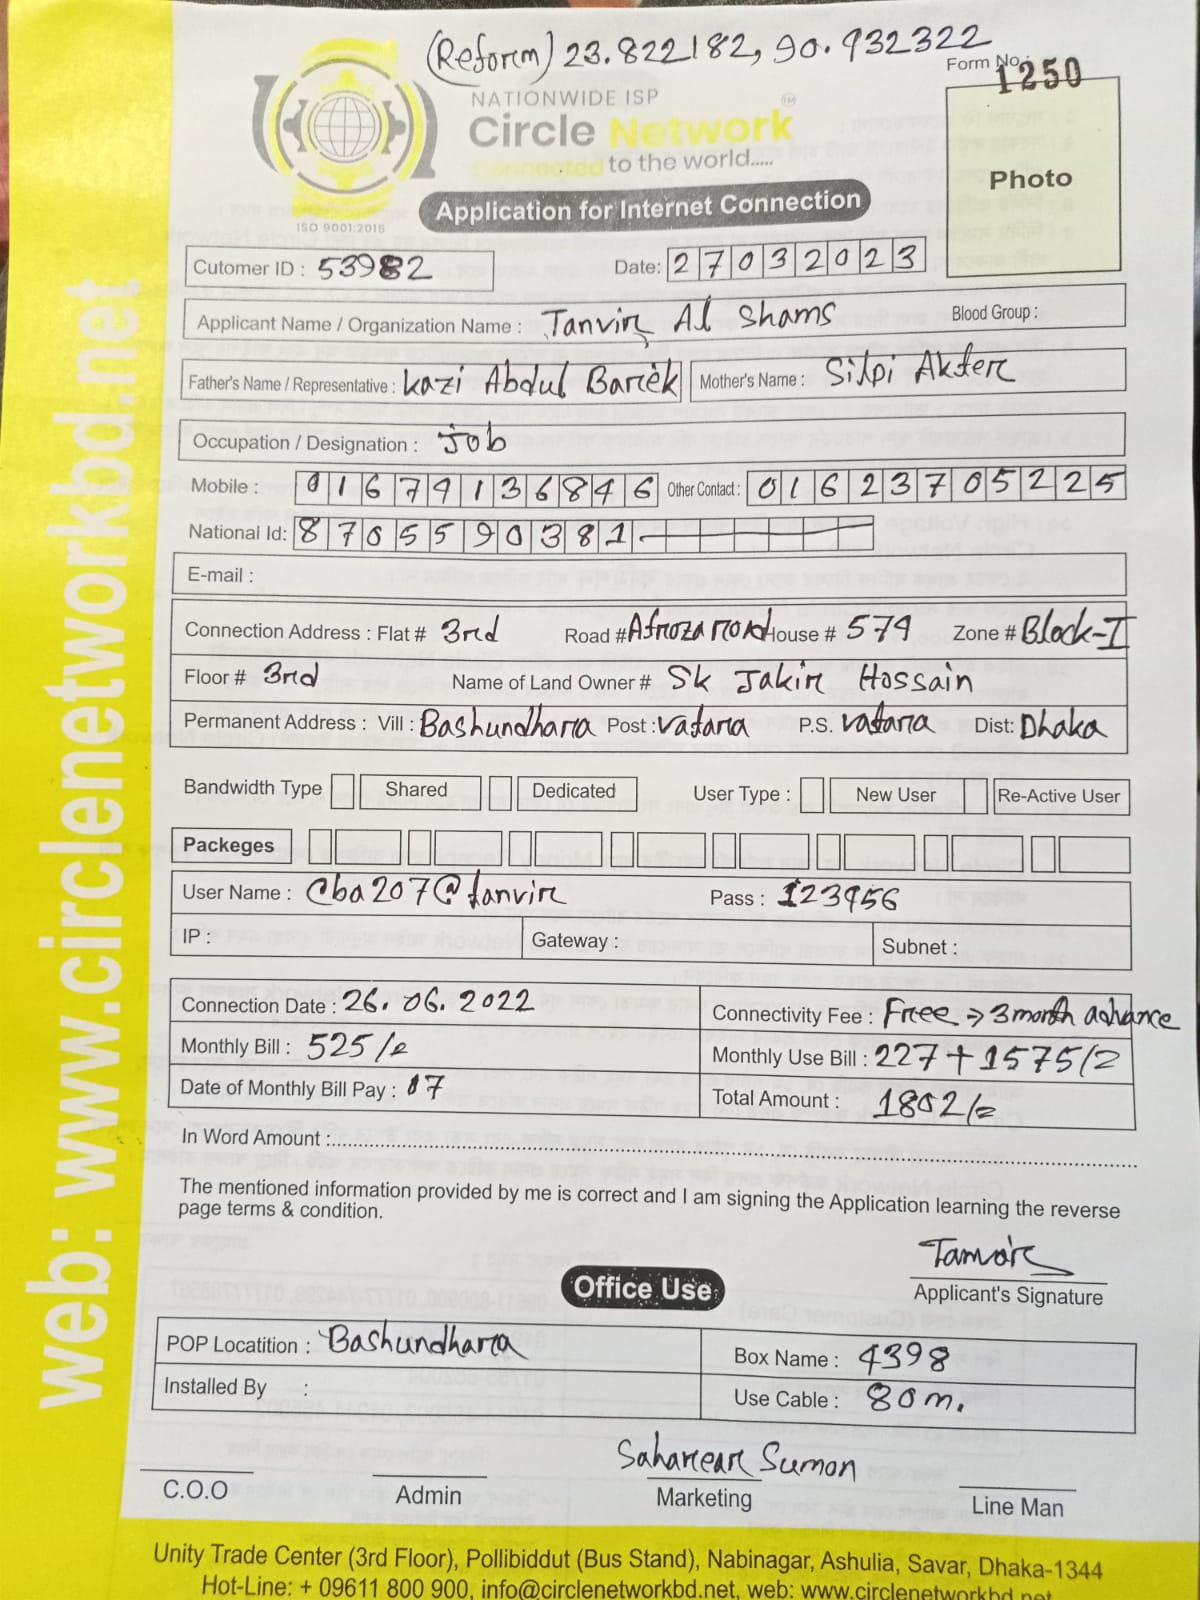 (Reform) 23.822182, 90.932322
Form No. : 1250
NATIONWIDE ISP
Circle Network TM
Connected to the world.....
ISO 9001:2015
Photo
Application for Internet Connection
Cutomer ID : 53982 Date: 27032023
Applicant Name / Organization Name : Tanvir Al Shams Blood Group :
Father's Name / Representative : Kazi Abdul Barek Mother's Name : Silpi Akter
Occupation / Designation : Job
Mobile : 01679136846 Other Contact : 01623705225
National Id: 8705590381
E-mail :
Connection Address : Flat # 3rd Road # Afroza road House # 574 Zone # Block-I
Floor # 3rd Name of Land Owner # Sk Jakir Hossain
Permanent Address : Vill : Bashundhara Post : vatara P.S. vatara Dist: Dhaka
Bandwidth Type Shared Dedicated User Type : New User Re-Active User
Packeges
User Name : Cba207@tanvir Pass : 123456
IP : Gateway : Subnet :
Connection Date : 26.06.2022 Connectivity Fee : Free => 3 month advance
Monthly Bill : 525/= Monthly Use Bill : 227 + 1575/=
Date of Monthly Bill Pay : 07 Total Amount : 1802/=
In Word Amount :
The mentioned information provided by me is correct and I am signing the Application learning the reverse
page terms & condition.
Tanvir
Applicant's Signature
Office Use
POP Locatition : Bashundhara Box Name : 4398
Installed By : Use Cable : 80m.
Sahareare Sumon
C.O.O Admin Marketing Line Man
Unity Trade Center (3rd Floor), Pollibiddut (Bus Stand), Nabinagar, Ashulia, Savar, Dhaka-1344
Hot-Line: + 09611 800 900, info@circlenetworkbd.net, web: www.circlenetworkbd.net
web: www.circlenetworkbd.net